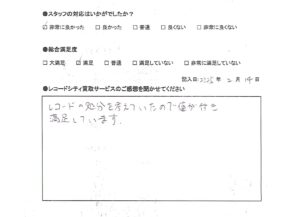 ●スタッフの対応はいかがでしたか？
☑ 非常に良かった　□ 良かった　□ 普通　□ 良くない　□ 非常に良くない
●総合満足度
□ 大満足　☑ 満足　□ 普通　□ 満足していない　□ 非常に満足していない
記入日：2025年 2月 14日
●レコードシティ買取サービスのご感想を聞かせてください
レコードの処分を考えていたので値が付き
満足しています。